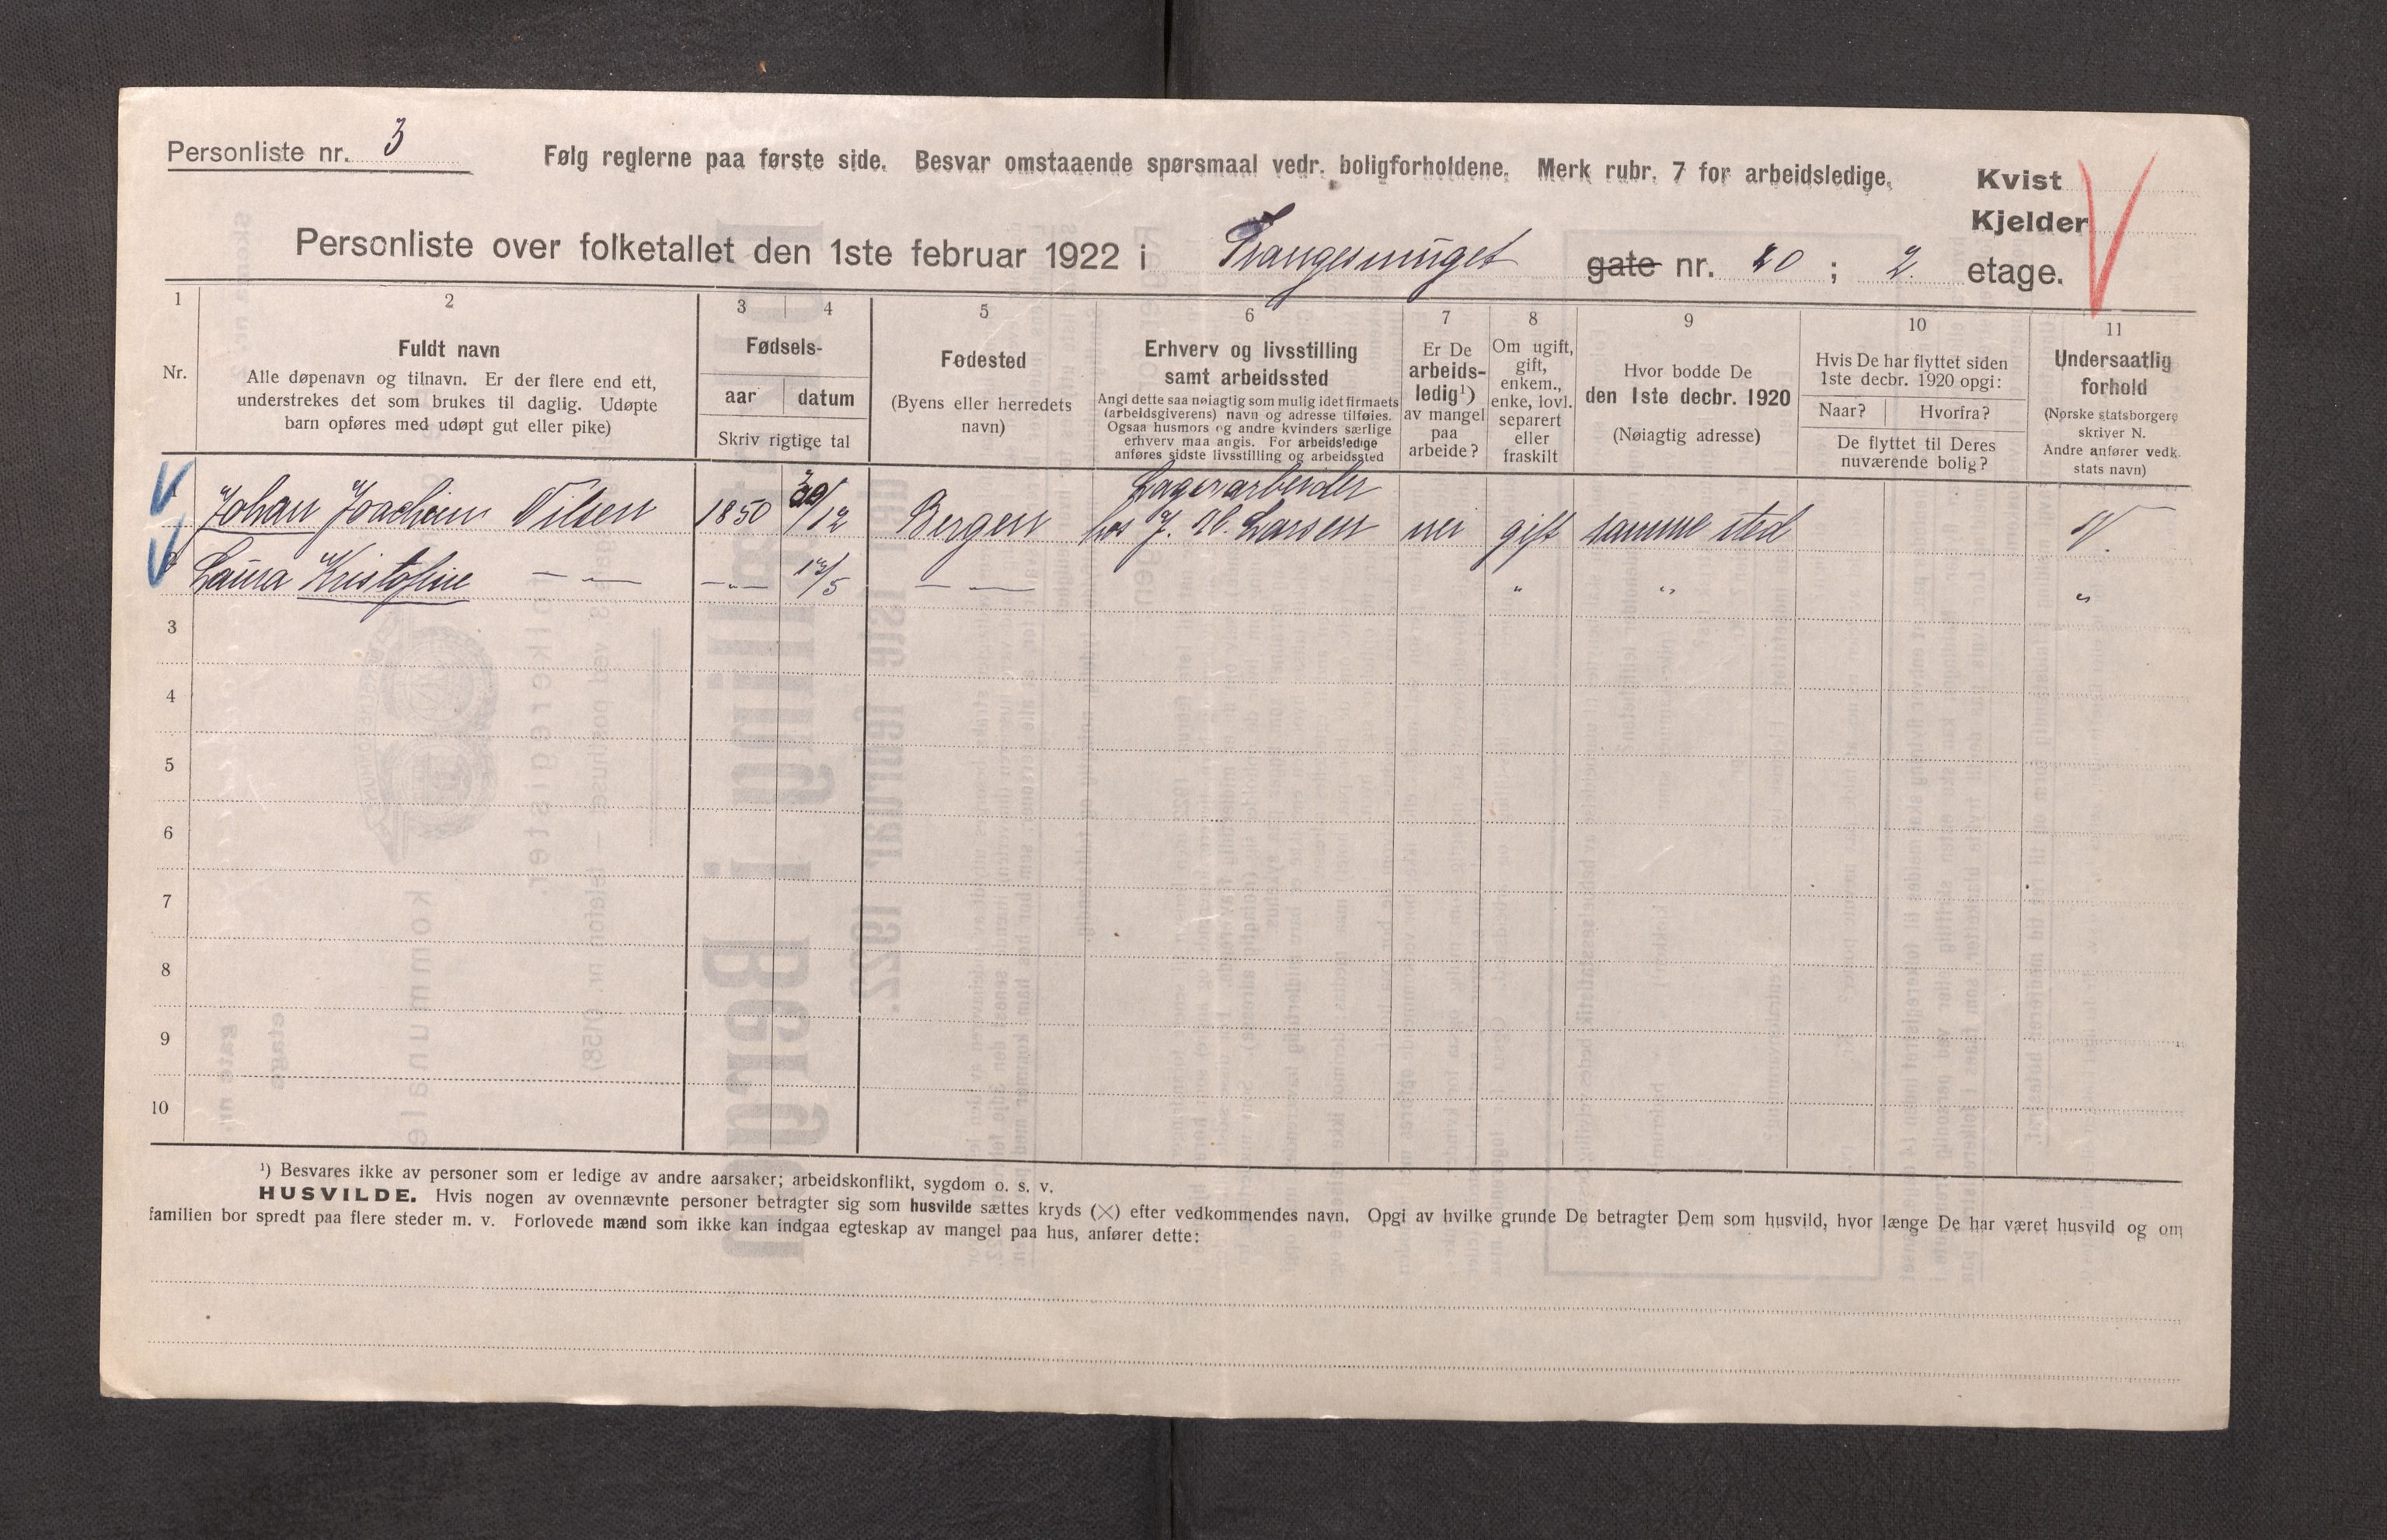 Personliste nr. 3
Følg reglerne paa første side. Besvar omstaaende spørsmaal vedr. boligforholdene. Merk rubr. 7 for arbeidsledige.
Kvist
Kjelder
Personliste over folketallet den 1ste februar 1922 i Trangesmuget gate nr. 20 ; 2. etage.
1 2 3 4 5 6 7 8 9 10 11
Nr.
Fuldt navn
Alle døpenavn og tilnavn. Er der flere end ett,
understrekes det som brukes til daglig. Udøpte
barn opføres med udøpt gut eller pike)
Fødsels-
aar datum
Skriv rigtige tal
Fødested
(Byens eller herredets
navn)
Erhverv og livsstilling
samt arbeidssted
Angi dette saa nøiagtig som mulig idet firmaets
(arbeidsgiverens) navn og adresse tilføies.
Ogsaa husmors og andre kvinders særlige
erhverv maa angis. For arbeidsledige
anføres sidste livsstilling og arbeidssted
Er De
arbeids-
ledig¹)
av mangel
paa
arbeide?
Om ugift,
gift,
enkem.,
enke, lovl.
separert
eller
fraskilt
Hvor bodde De
den 1ste decbr. 1920
(Nøiagtig adresse)
Hvis De har flyttet siden
1ste decbr. 1920 opgi:
Naar? Hvorfra?
De flyttet til Deres
nuværende bolig?
Undersaatlig
forhold
(Norske statsborgere
skriver N.
Andre anfører vedk.
stats navn)
Lagerarbeider
Johan Joachim Nilsen 1850 /12 Bergen hos J. M. Larsen nei gift samme sted N.
Laura Kristofine — — —„— 12/5 — — „ „ „
3
4
5
6
7
8
9
10
¹) Besvares ikke av personer som er ledige av andre aarsaker; arbeidskonflikt, sygdom o. s. v.
HUSVILDE. Hvis nogen av ovennævnte personer betragter sig som husvilde sættes kryds (×) efter vedkommendes navn. Opgi av hvilke grunde De betragter Dem som husvild, hvor længe De har været husvild og om
familien bor spredt paa flere steder m. v. Forlovede mænd som ikke kan indgaa egteskap av mangel paa hus, anfører dette: